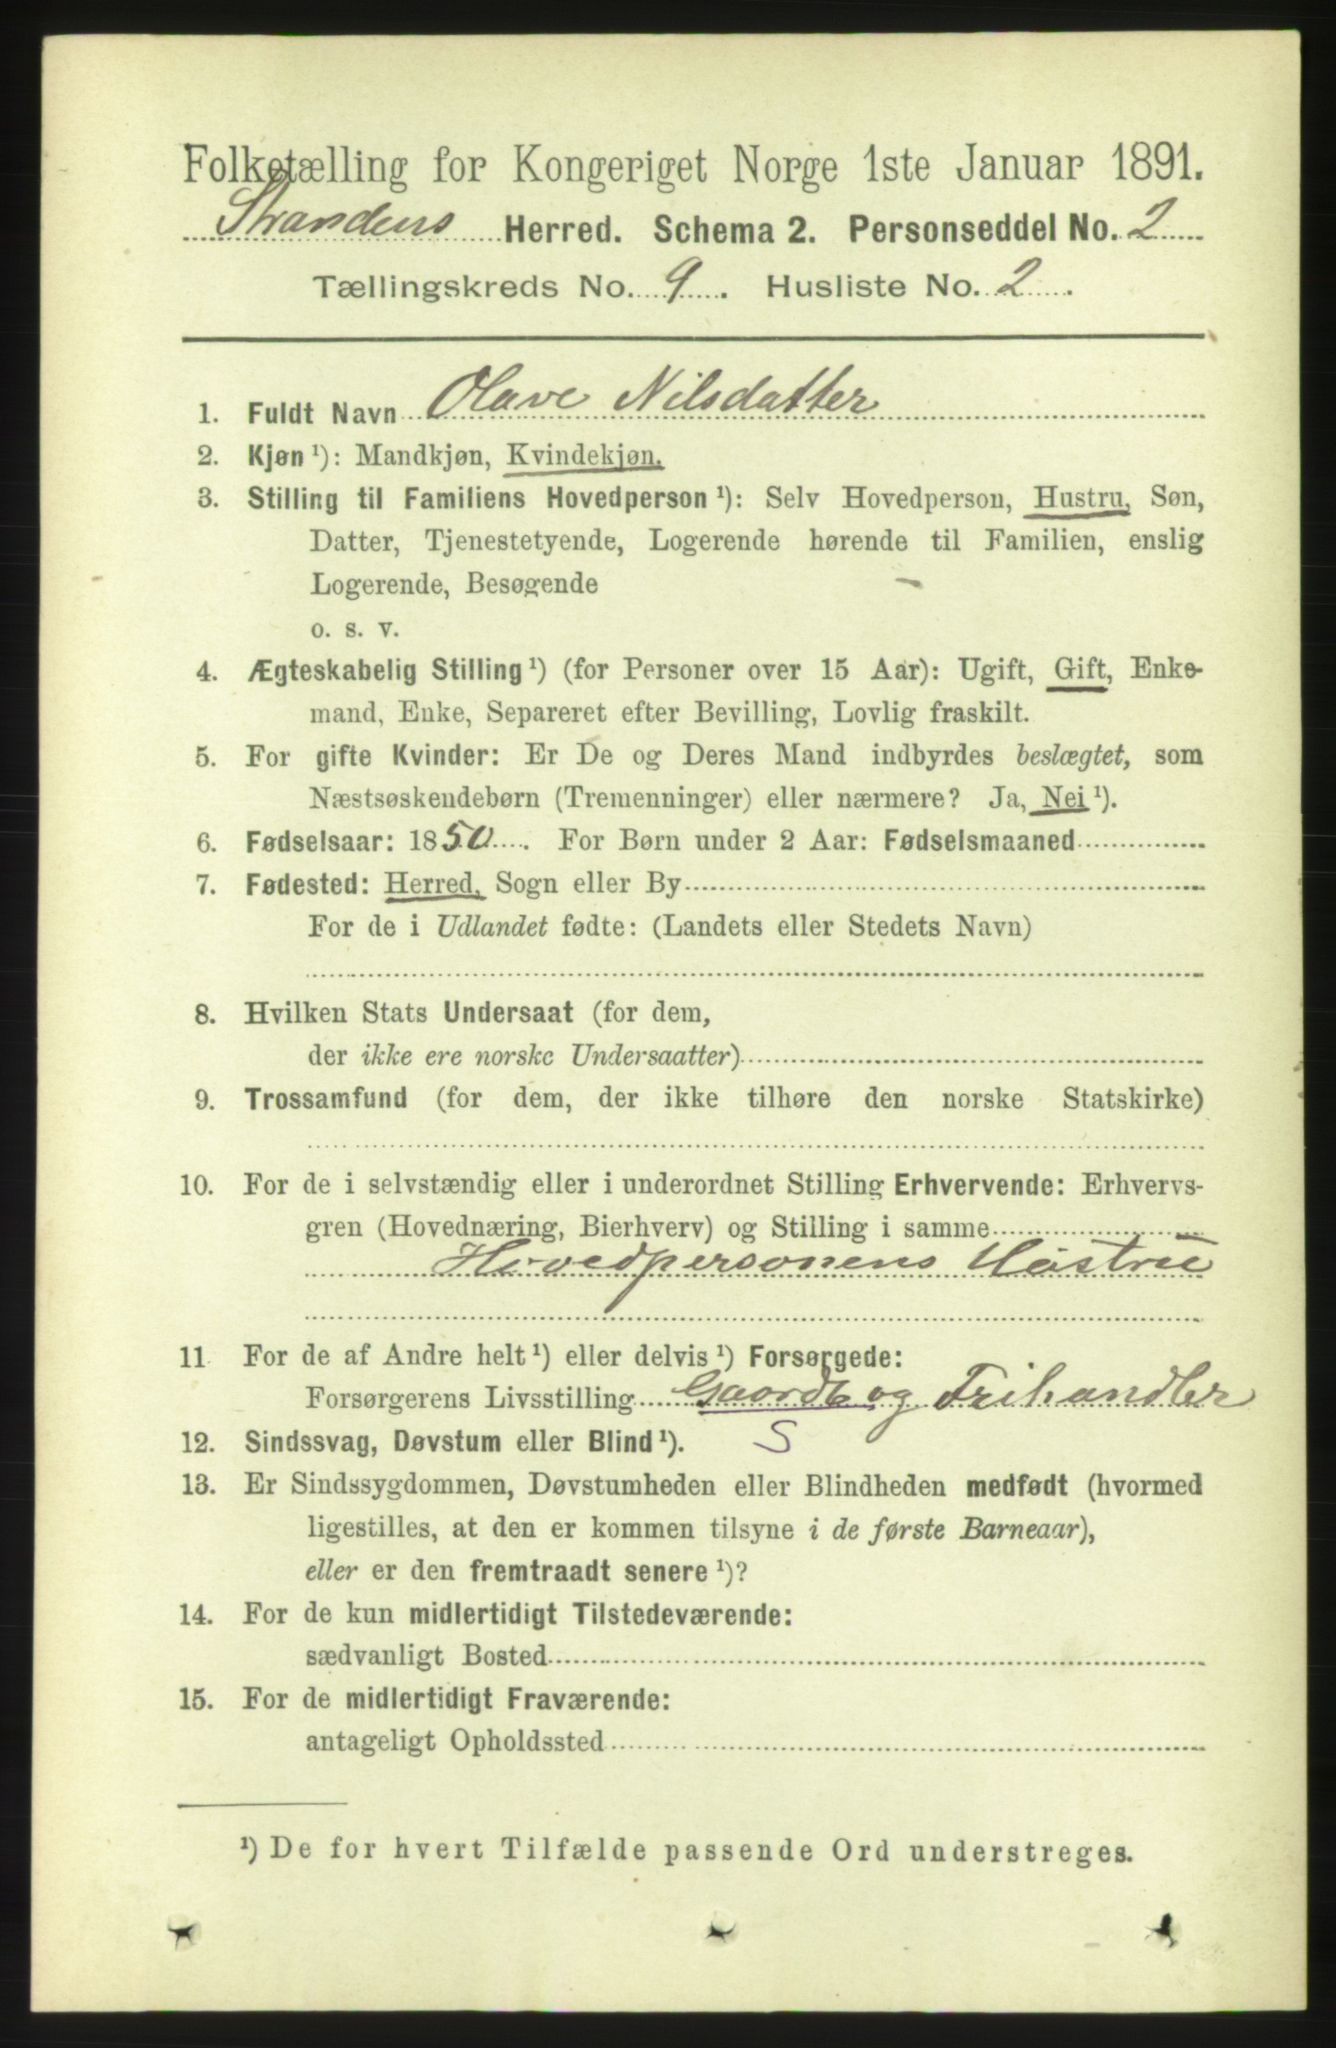 Folketælling for Kongeriget Norge 1ste Januar 1891.
Strandens Herred. Schema 2. Personseddel No. 2
Tællingskreds No. 9. Husliste No. 2.
1. Fuldt Navn Olave Nilsdatter
2. Kjøn ¹): Mandkjøn, Kvindekjøn.
3. Stilling til Familiens Hovedperson ¹): Selv Hovedperson, Hustru, Søn,
Datter, Tjenestetyende, Logerende hørende til Familien, enslig
Logerende, Besøgende
o. s. v.
4. Ægteskabelig Stilling ¹) (for Personer over 15 Aar): Ugift, Gift, Enke-
mand, Enke, Separeret efter Bevilling, Lovlig fraskilt.
5. For gifte Kvinder: Er De og Deres Mand indbyrdes beslægtet, som
Næstsøskendebørn (Tremenninger) eller nærmere? Ja, Nei ¹).
6. Fødselsaar: 1850. For Børn under 2 Aar: Fødselsmaaned
7. Fødested: Herred, Sogn eller By
For de i Udlandet fødte: (Landets eller Stedets Navn)
8. Hvilken Stats Undersaat (for dem,
der ikke ere norske Undersaatter)
9. Trossamfund (for dem, der ikke tilhøre den norske Statskirke)
10. For de i selvstændig eller i underordnet Stilling Erhvervende: Erhvervs-
gren (Hovednæring, Bierhverv) og Stilling i samme
Hovedpersonens Hustru
11 For de af Andre helt ¹) eller delvis ¹) Forsørgede:
Forsørgerens Livsstilling Gaardb og Frihandler
12. Sindssvag, Døvstum eller Blind ¹). S
13. Er Sindssygdommen, Døvstumheden eller Blindheden medfødt (hvormed
ligestilles, at den er kommen tilsyne i de første Barneaar),
eller er den fremtraadt senere ¹)?
14. For de kun midlertidigt Tilstedeværende:
sædvanligt Bosted
15. For de midlertidigt Fraværende:
antageligt Opholdssted
¹) De for hvert Tilfælde passende Ord understreges.